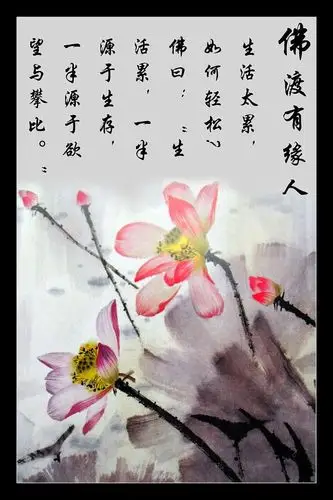 佛渡有缘人
生活太累，
如何轻松？
佛曰：“生
活累，一半
源于生存，
一半源于欲
望与攀比。”